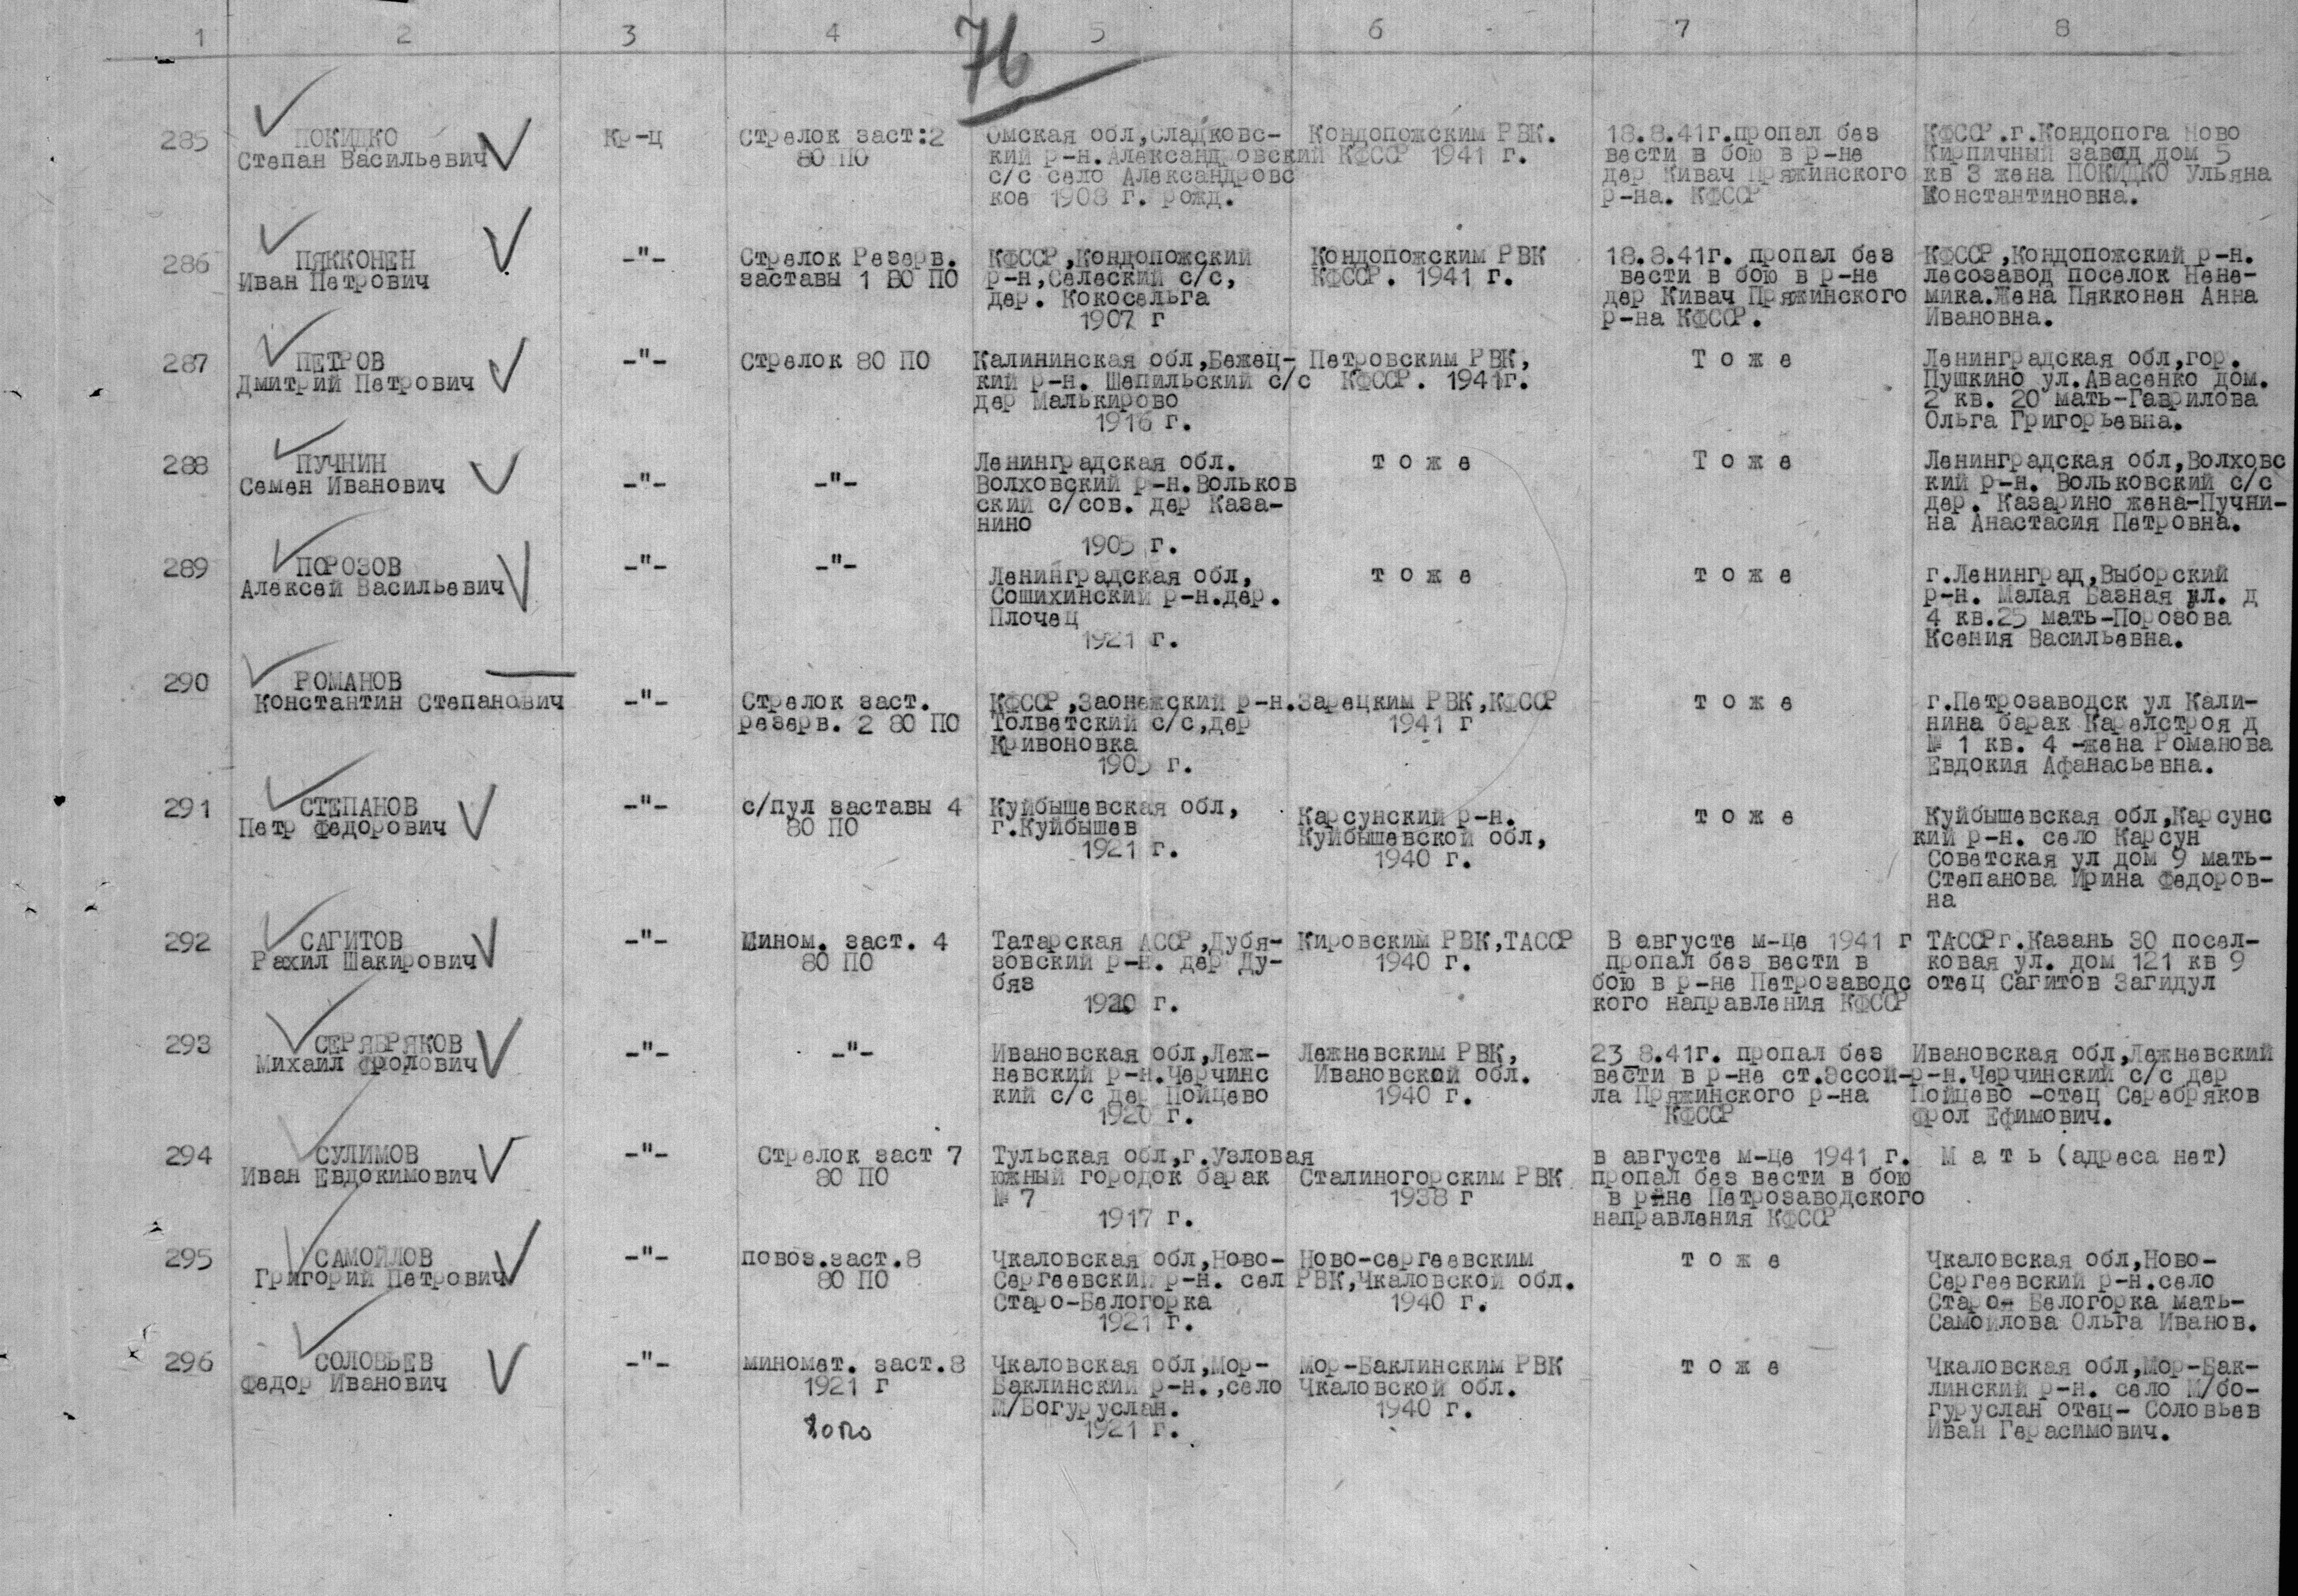 1 2 3 4 5 6 7 8
76
285 ПОКИДКО Степан Васильевич
Кр-ц
Стрелок заст:2
80 ПО
Омская обл,Сладковс-
кий р-н.Александровский
с/с село Александровс
кое 1908 г. рожд.
Кондопожским РВК.
КФССР 1941 г.
18.8.41г.пропал без
вести в бою в р-не
дер Кивач Пряжинского
р-на. КФССР
КФССР.г.Кондопога Ново
Кирпичный завод дом 5
кв 3 жена ПОКИДКО Ульяна
Константиновна.
286 ПЯККОНЕН
Иван Петрович
-"-
Стрелок Резерв.
заставы 1 80 ПО
КФССР,Кондопожский
р-н,Селеский с/с,
дер. Кокосельга
1907 г
Кондопожским РВК
КФССР. 1941 г.
18.8.41г. пропал без
вести в бою в р-не
дер Кивач Пряжинского
р-на КФССР.
КФССР,Кондопожский р-н.
лесозавод поселок Нене-
мика.Жена Пякконен Анна
Ивановна.
287 ПЕТРОВ
Дмитрий Петрович
-"-
Стрелок 80 ПО
Калининская обл,Бежец-
кий р-н. Шепильский с/с
дер Малькирово
1916 г.
Петровским РВК,
КФССР. 1941г.
Т о ж е
Ленинградская обл,гор.
Пушкино ул.Авасенко дом.
2 кв. 20 мать-Гаврилова
Ольга Григорьевна.
288 ПУЧНИН
Семен Иванович
-"-
-"-
Ленинградская обл.
Волховский р-н.Вольков
ский с/сов. дер Каза-
нино
1905 г.
т о ж е
Т о ж е
Ленинградская обл,Волховс
кий р-н. Вольковский с/с
дер. Казарино жена-Пучни-
на Анастасия Петровна.
289 ПОРОЗОВ
Алексей Васильевич
-"-
-"-
Ленинградская обл,
Сошихинский р-н.дер.
Плочец
1921 г.
т о ж е
т о ж е
г.Ленинград,Выборский
р-н. Малая Вазная ул. д
4 кв.25 мать-Порозова
Ксения Васильевна.
290 РОМАНОВ
Константин Степанович
-"-
Стрелок заст.
резерв. 2 80 ПО
КФССР,Заонежский р-н.
Толветский с/с,дер
Кривоновка
1905 г.
Зарецким РВК,КФССР
1941 г
т о ж е
г.Петрозаводск ул Кали-
нина барак Карелстроя д
№ 1 кв. 4 -жена Романова
Евдокия Афанасьевна.
291 СТЕПАНОВ
Петр Федорович
-"-
с/пул заставы 4
80 ПО
Куйбышевская обл,
г.Куйбышев
1921 г.
Карсунский р-н.
Куйбышевской обл,
1940 г.
т о ж е
Куйбышевская обл,Карсунс
кий р-н. село Карсун
Советская ул дом 9 мать-
Степанова Ирина Федоров-
на
292 САГИТОВ
Рахил Шакирович
-"-
Мином. заст. 4
80 ПО
Татарская АССР,Дубя-
зовский р-н. дер Ду-
бяз
1920 г.
Кировским РВК,ТАССР
1940 г.
В августе м-це 1941 г
пропал без вести в
бою в р-не Петрозаводс
кого направления КФССР
ТАССР г.Казань 30 посел-
ковая ул. дом 121 кв 9
отец Сагитов Загидул
293 СЕРЯБРЯКОВ
Михаил Фролович
-"-
-"-
Ивановская обл,Леж-
невский р-н.Черчинс
кий с/с дер Пойцево
1920 г.
Лежневским РВК,
Ивановской обл.
1940 г.
23 8.41г. пропал без
вести в р-не ст.Эссой-
ла Пряжинского р-на
КФССР
Ивановская обл,Лежневский
р-н.Черчинский с/с дер
Пойцево -отец Серебряков
Фрол Ефимович.
294 СУЛИМОВ
Иван Евдокимович
-"-
Стрелок заст 7
80 ПО
Тульская обл,г.Узловая
южный городок барак
№ 7
1917 г.
Сталиногорским РВК
1938 г
в августе м-це 1941 г.
пропал без вести в бою
в р-не Петрозаводского
направления КФССР
М а т ь (адреса нет)
295 САМОЙЛОВ
Григорий Петрович
-"-
повоз.заст.8
80 ПО
Чкаловская обл,Ново-
Сергеевский р-н. сел
Старо-Белогорка
1921 г.
Ново-сергеевским
РВК,Чкаловской обл.
1940 г.
т о ж е
Чкаловская обл,Ново-
Сергеевский р-н.село
Старо- Белогорка мать-
Самойлова Ольга Иванов.
296 СОЛОВЬЕВ
Федор Иванович
-"-
миномет. заст.8
1921 г
80 ПО
Чкаловская обл,Мор-
Баклинский р-н.,село
М/Богуруслан.
1921 г.
Мор-Баклинским РВК
Чкаловской обл.
1940 г.
т о ж е
Чкаловская обл,Мор-Бак-
линский р-н. село М/бо-
гуруслан отец- Соловьев
Иван Герасимович.